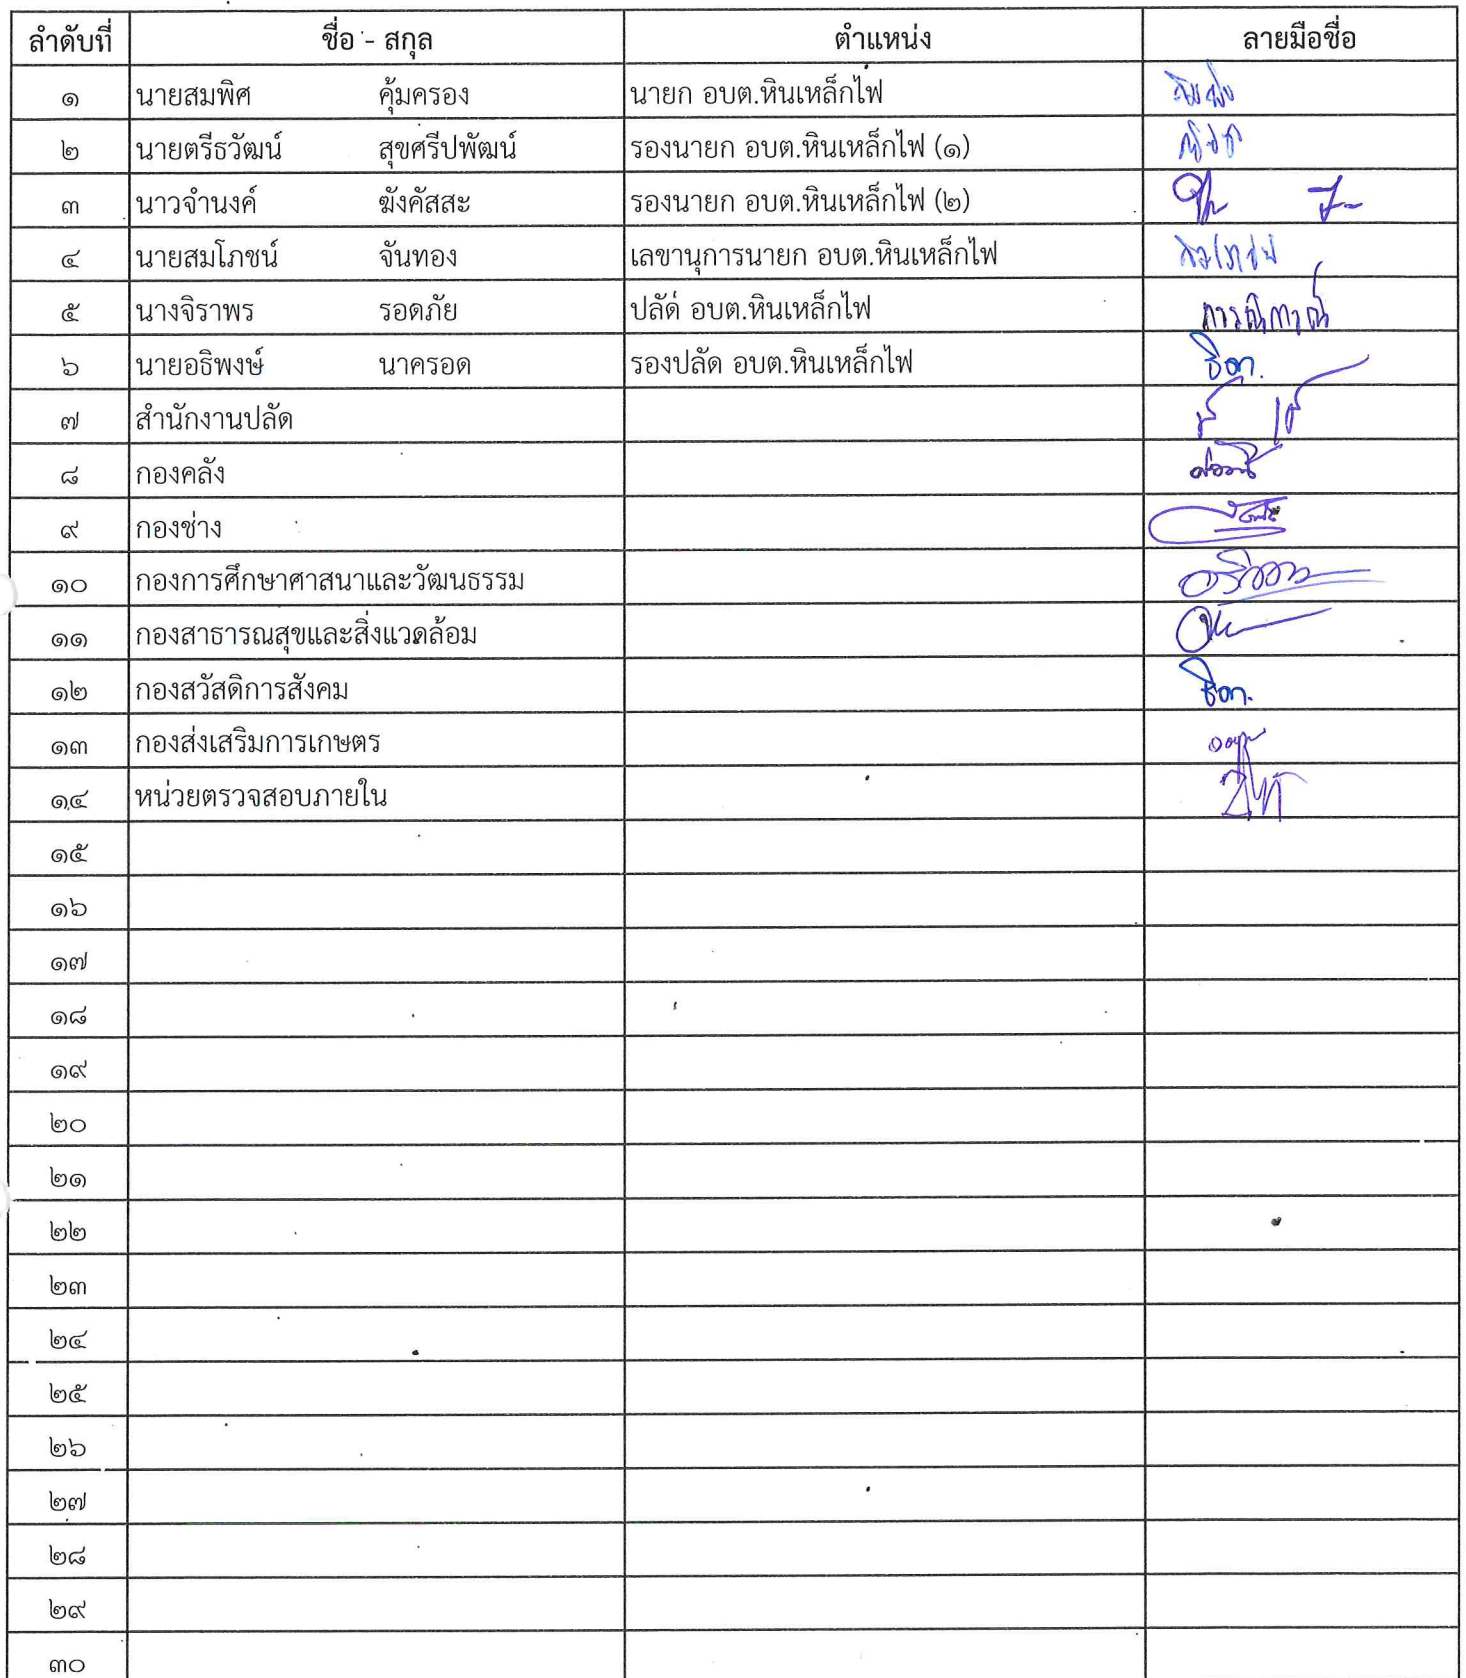 ลำดับที่ ชื่อ - สกุล ตำแหน่ง ลายมือชื่อ
๑ นายสมพิศ คุ้มครอง นายก อบต.หินเหล็กไฟ
๒ นายตรีธวัฒน์ สุขศรีปพัฒน์ รองนายก อบต.หินเหล็กไฟ (๑)
๓ นาวจำนงค์ ฆังคัสสะ รองนายก อบต.หินเหล็กไฟ (๒)
๔ นายสมโภชน์ จันทอง เลขานุการนายก อบต.หินเหล็กไฟ
๕ นางจิราพร รอดภัย ปลัด อบต.หินเหล็กไฟ
๖ นายอธิพงษ์ นาครอด รองปลัด อบต.หินเหล็กไฟ
๗ สำนักงานปลัด
๘ กองคลัง
๙ กองช่าง
๑๐ กองการศึกษาศาสนาและวัฒนธรรม
๑๑ กองสาธารณสุขและสิ่งแวดล้อม
๑๒ กองสวัสดิการสังคม
๑๓ กองส่งเสริมการเกษตร
๑๔ หน่วยตรวจสอบภายใน
๑๕
๑๖
๑๗
๑๘
๑๙
๒๐
๒๑
๒๒
๒๓
๒๔
๒๕
๒๖
๒๗
๒๘
๒๙
๓๐